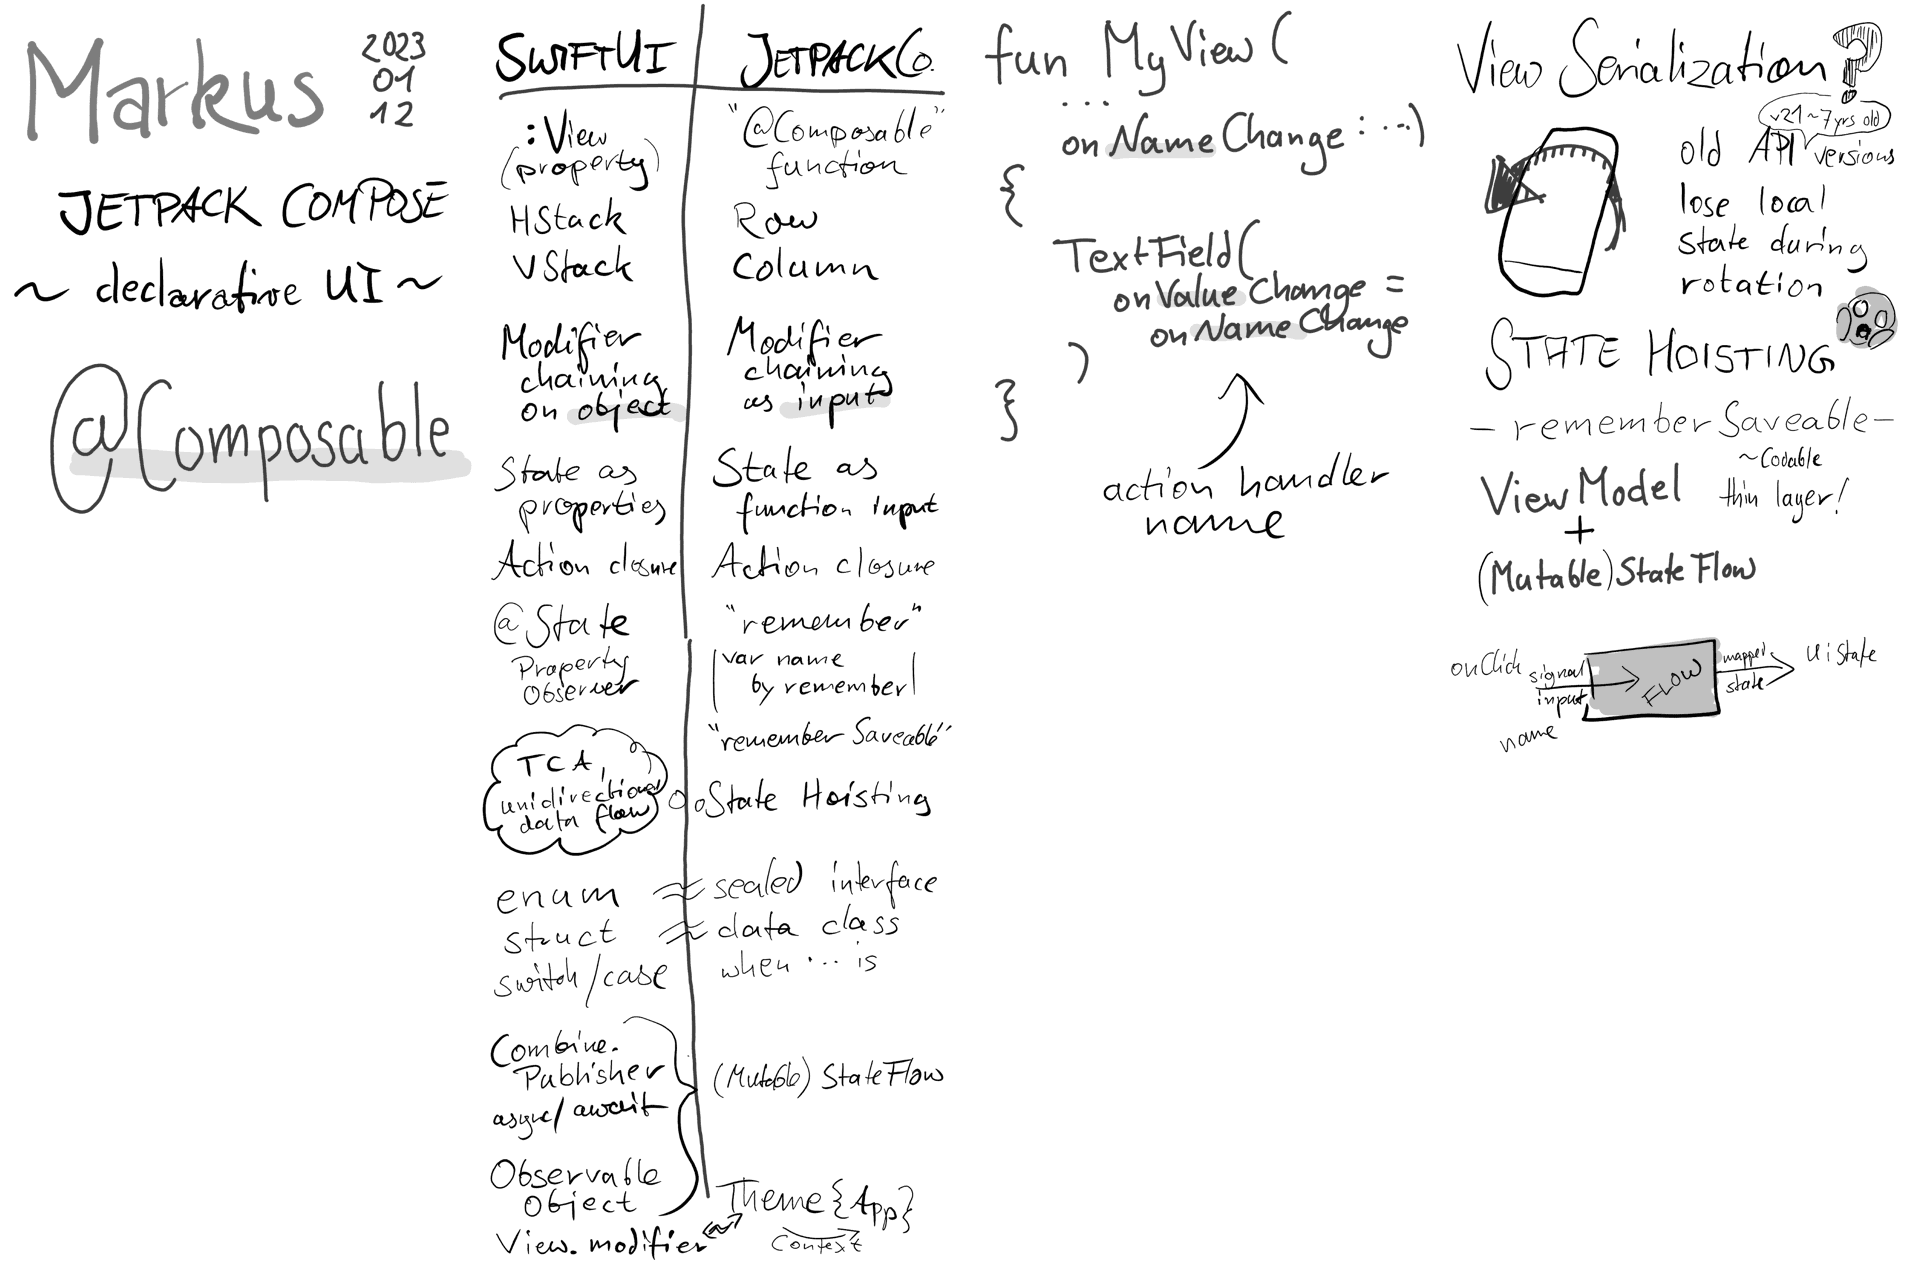 Markus
2023
01
12
JETPACK COMPOSE
~ declarative UI ~
@Composable
SWIFTUI
JETPACK Co.
: View
(property)
"@Composable"
function
HStack
Row
VStack
Column
Modifier
chaining
on object
Modifier
chaining
as input
State as
properties
State as
function input
Action closure
Action closure
@State
"remember"
Property
Observer
var name
by remember
"rememberSaveable"
TCA,
unidirectional
data flow
State Hoisting
enum ≈ sealed interface
struct ≈ data class
switch/case
when ... is
Combine.
Publisher
async/await
Observable
Object
(Mutable) StateFlow
View.modifier
Theme {App}
Context
fun MyView(
...
onNameChange: ...)
{
TextField(
onValueChange =
onNameChange
)
}
action handler
name
View Serialization?
v21 ~ 7 yrs old
old API versions
lose local
state during
rotation
STATE HOISTING
- rememberSaveable -
~Codable
ViewModel
thin layer!
+
(Mutable) StateFlow
onClick
signal
input
name
FLOW
mapped
state
UiState